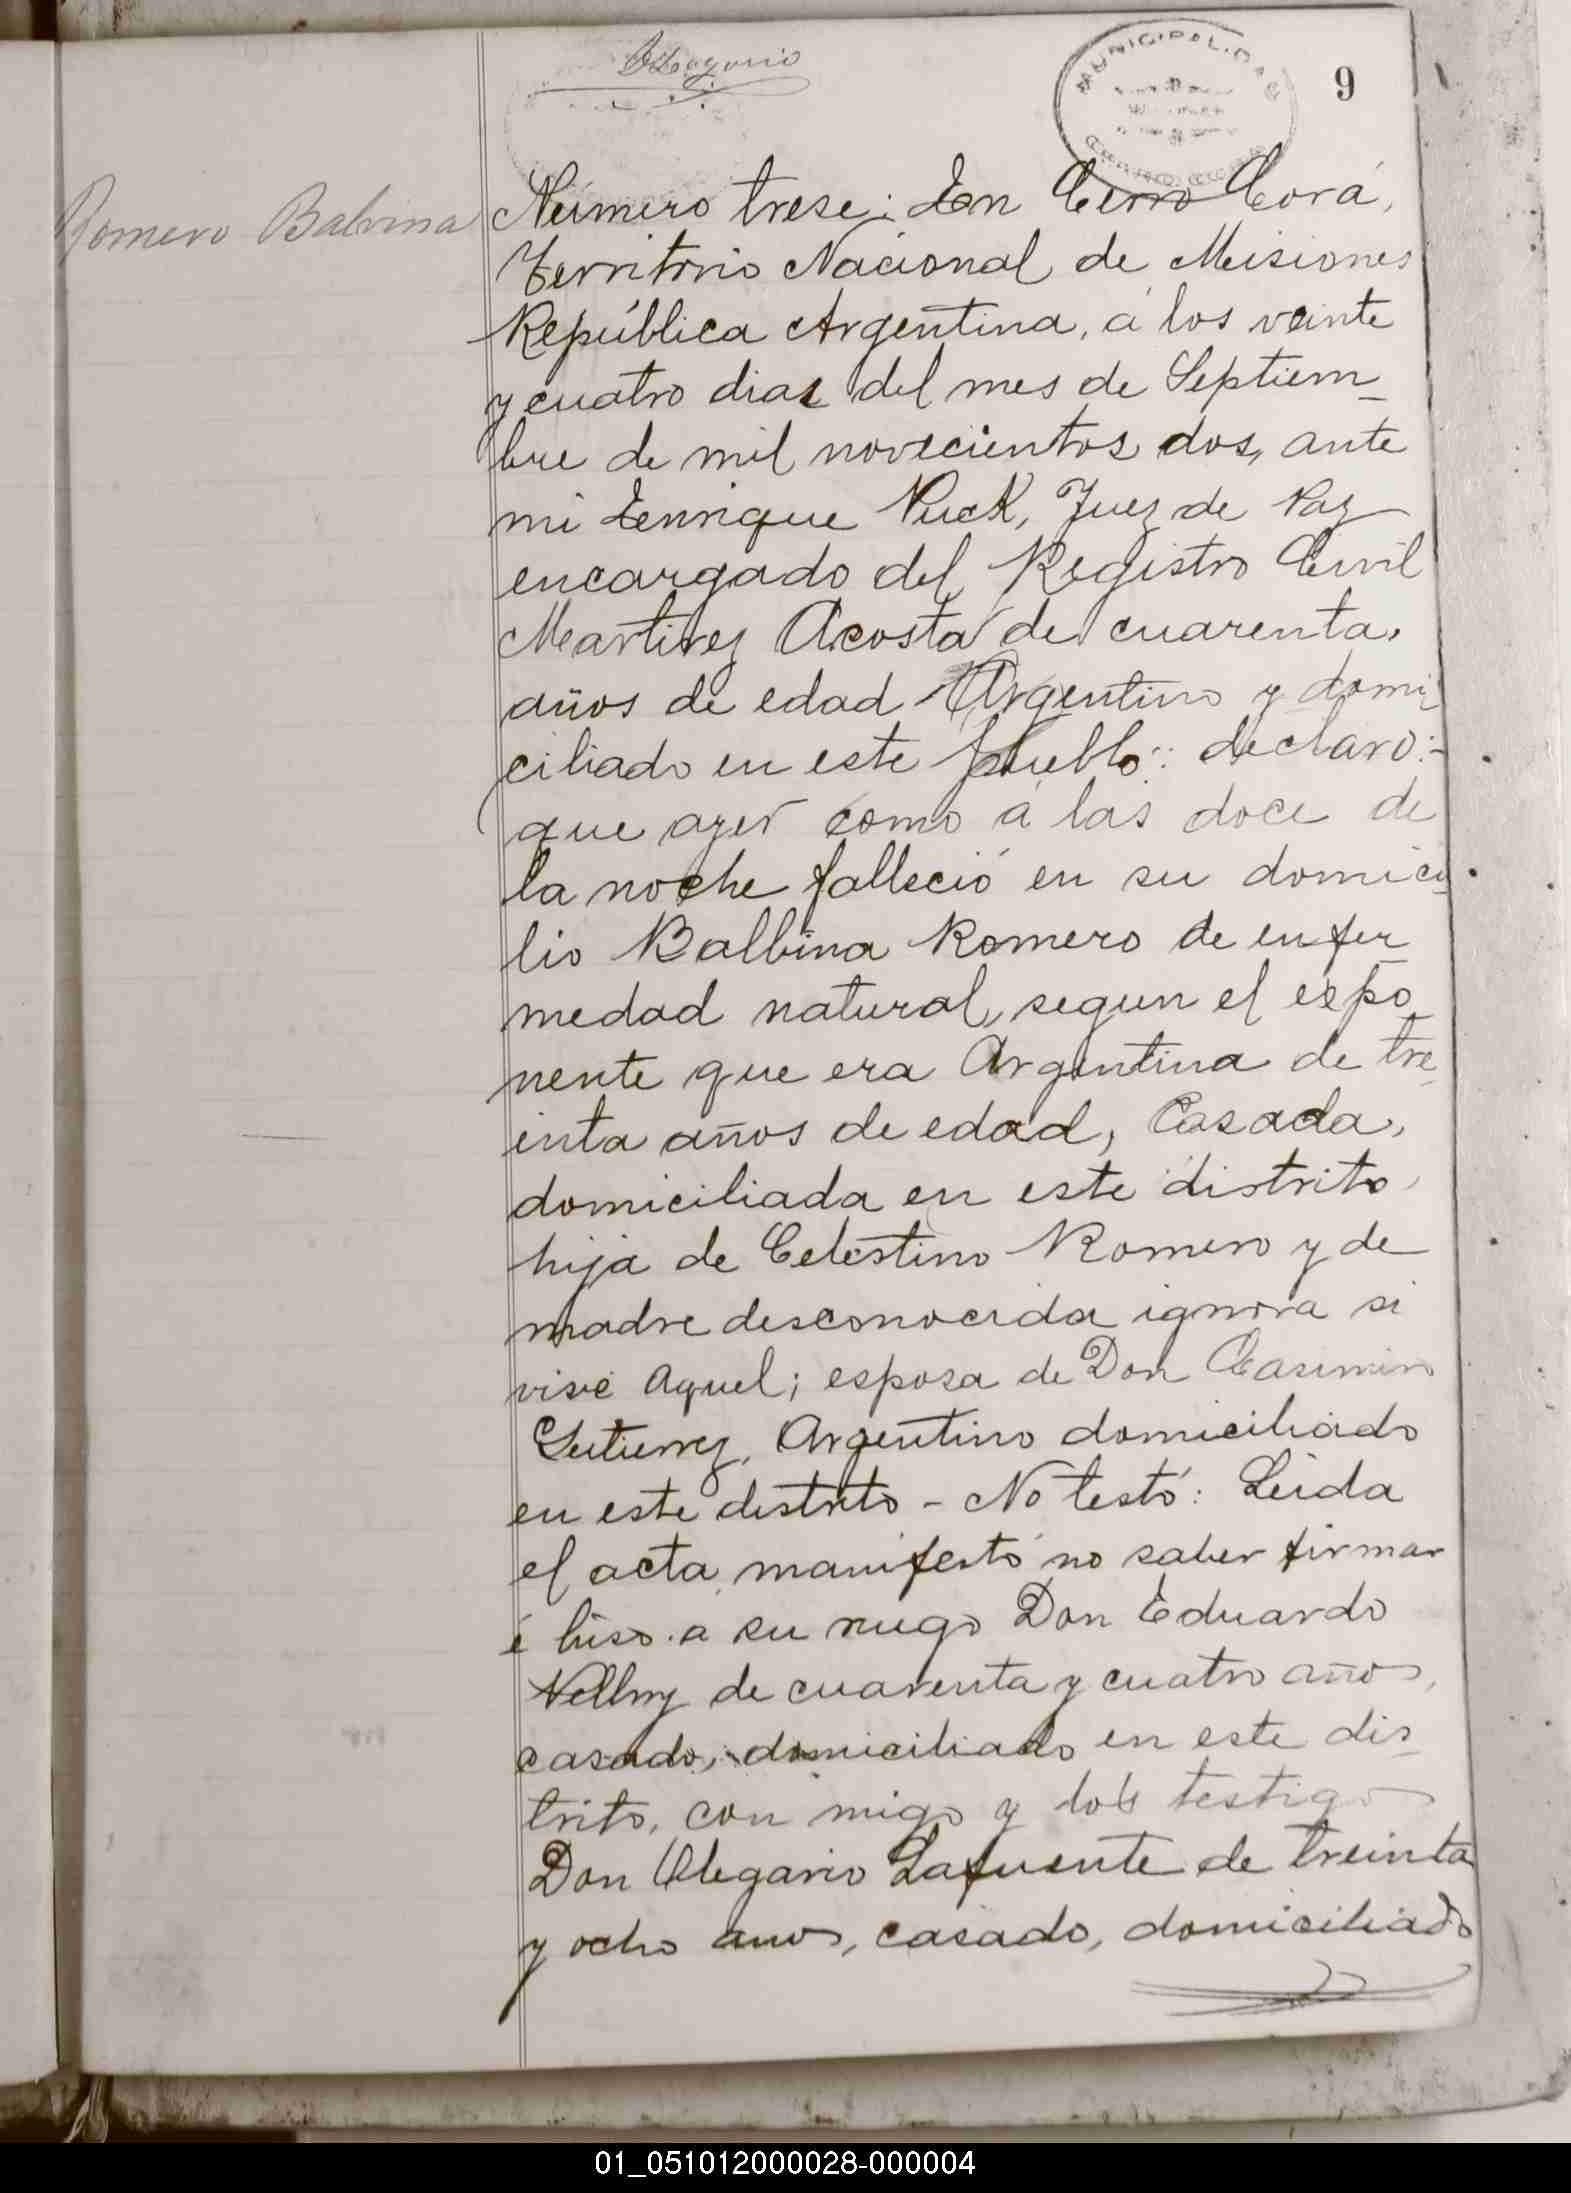 MUNICIPALIDAD
9
Romero Balvina
Número trese: En Cerro Corá,
Territorio Nacional de Misiones
República Argentina, á los veinte
y cuatro dias del mes de Septiem_
bre de mil novecientos dos, ante
mi Enrique Puck, Juez de Paz
encargado del Registro Civil
Martirez Acosta de cuarenta,
años de edad Argentino y domi
ciliado en este pueblo: declaro:-
que ayer como á las doce de
la noche falleció en su domici
lio Balbina Romero de enfer_
medad natural, segun el expo_
nente que era Argentina de tre_
inta años de edad, Casada,
domiciliada en este distrito,
hija de Celestino Romero y de
madre desconocida ignora si
vive aquel; esposa de Don Casimiro
Gutierrez, Argentino domiciliado
en este distrito - No testó: Leida
el acta manifestó no saber firmar
é hiso á su ruego Don Eduardo
de cuarenta y cuatro años,
casado, domiciliado en este dis_
trito, con migo y los testigos
Don Olegario Lafuente de treinta
y ocho anos, casado, domiciliado
01_051012000028-000004